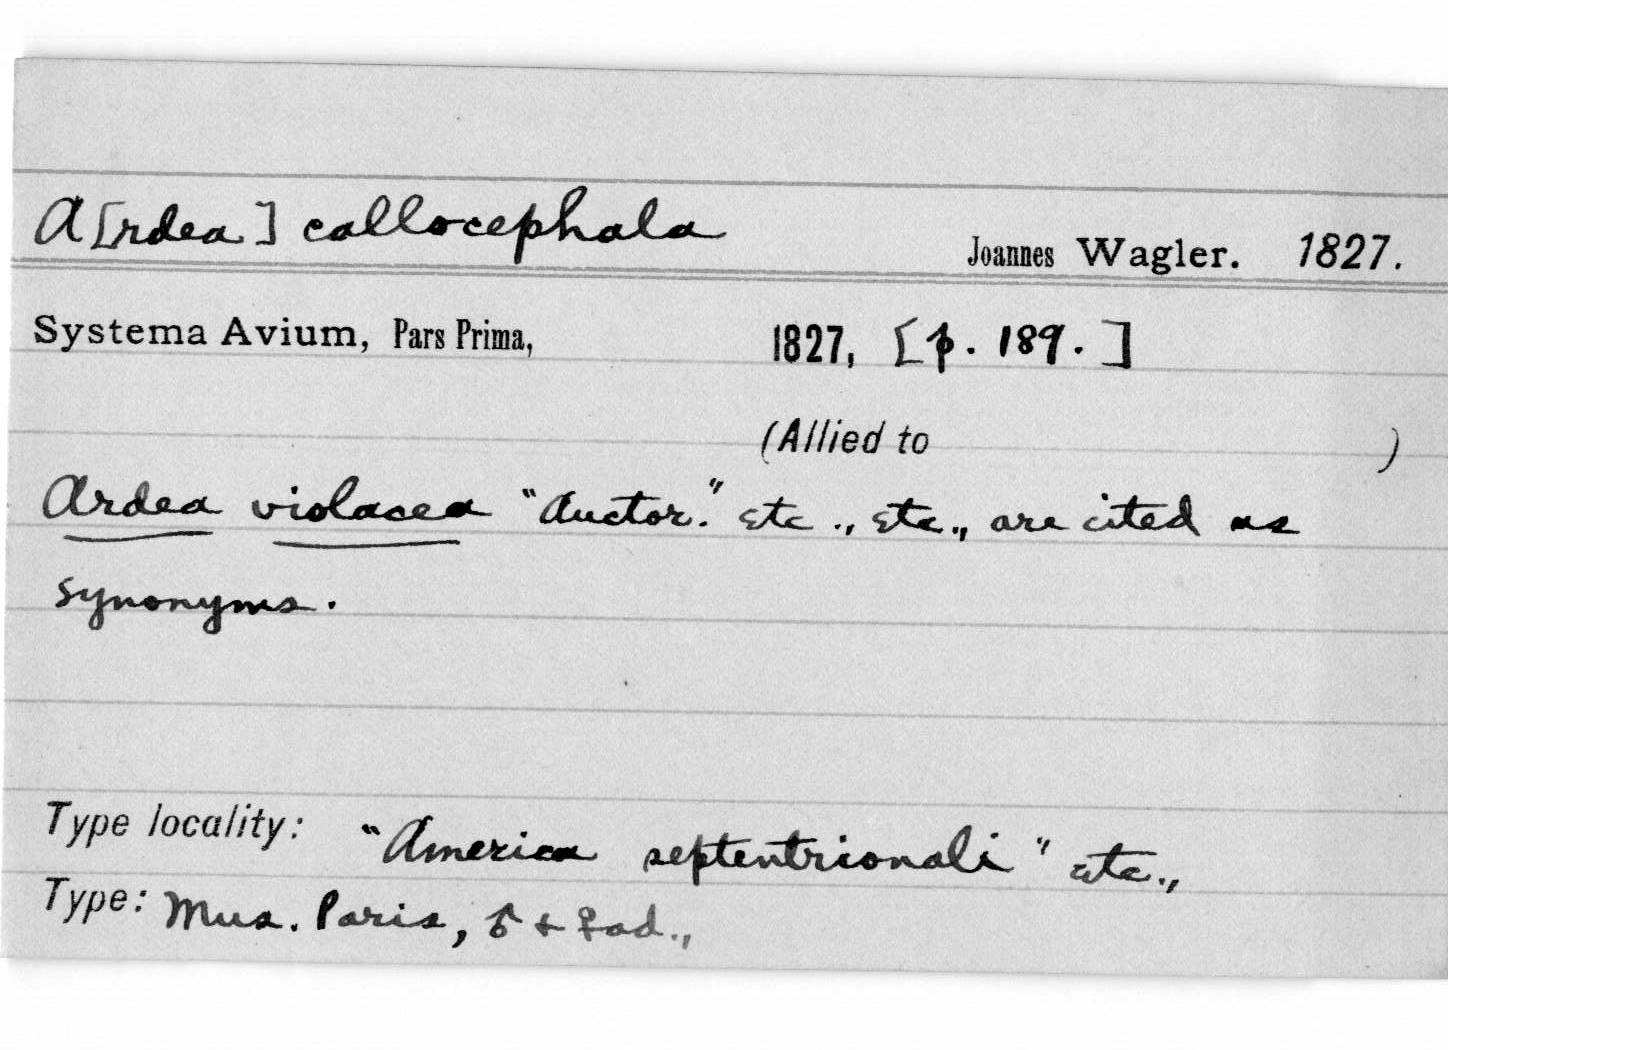 A[rdea] callocephala Joannes Wagler. 1827.
Systema Avium, Pars Prima, 1827, [p. 189.]
(Allied to )
Ardea violacea "Auctor." etc., etc., are cited as
synonyms.
Type locality: "America septentrionali" etc.,
Type: Mus. Paris, ♂ + ♀ ad.,